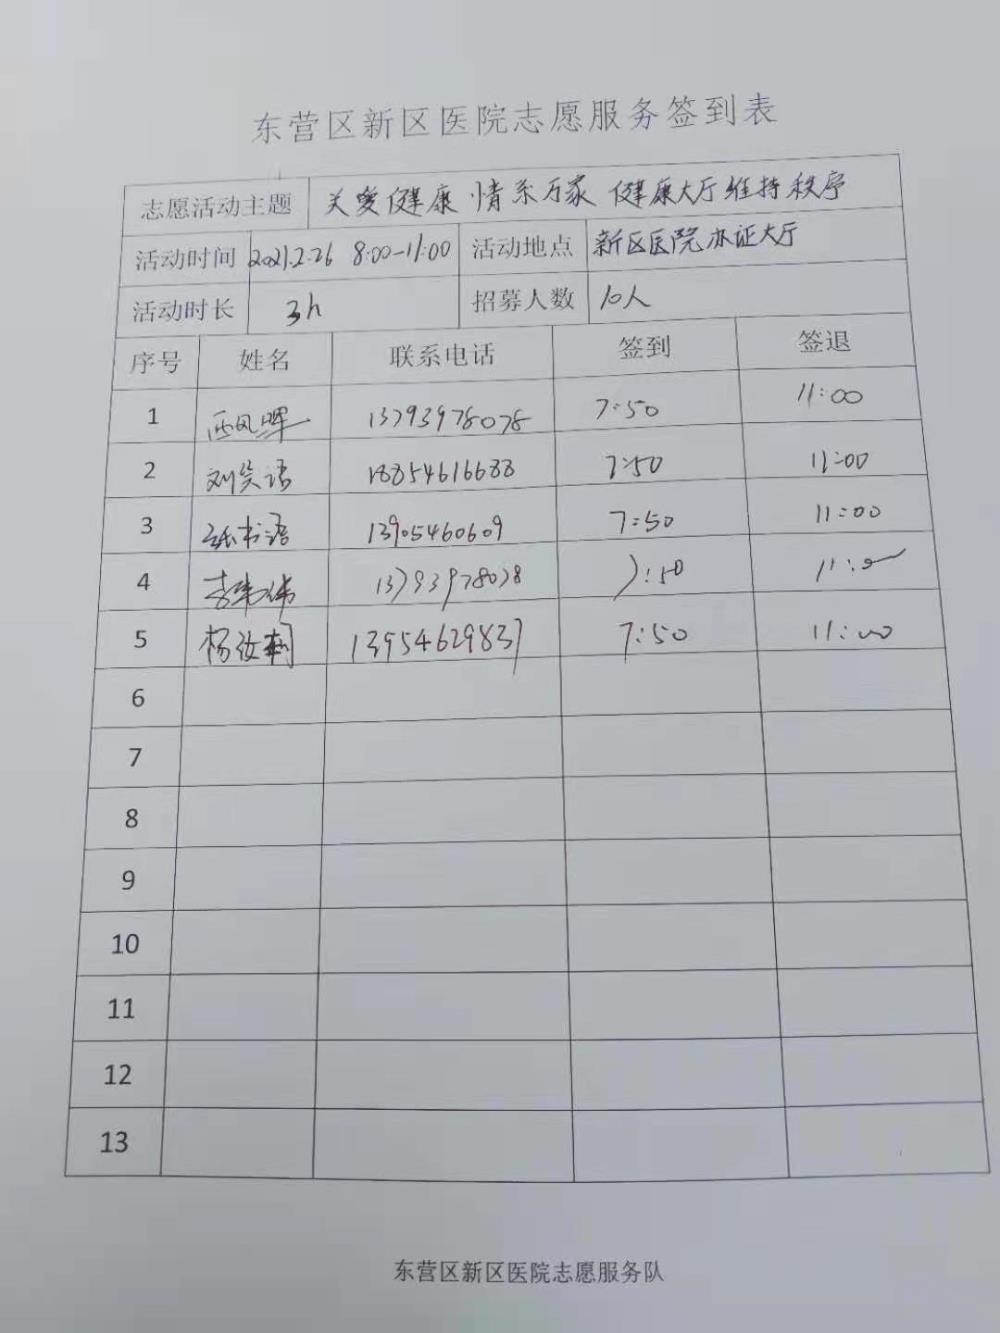 东营区新区医院志愿服务签到表
志愿活动主题 关爱健康 情系万家 健康大厅维持秩序
活动时间 2021.2.26 8:00-11:00 活动地点 新区医院办证大厅
活动时长 3h 招募人数 10人
序号 姓名 联系电话 签到 签退
1 13793978078 7:50 11:00
2 刘笑语 18854616688 7:50 11:00
3 张书语 13905460609 7:50 11:00
4 李伟 13793978078 7:50 11:00
5 杨汝 13954629837 7:50 11:00
6
7
8
9
10
11
12
13
东营区新区医院志愿服务队